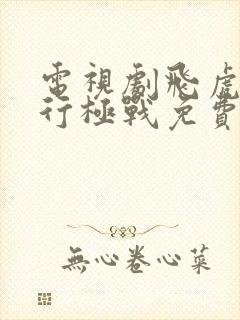 電視劇飛虎
行極戰免費
無心卷心菜